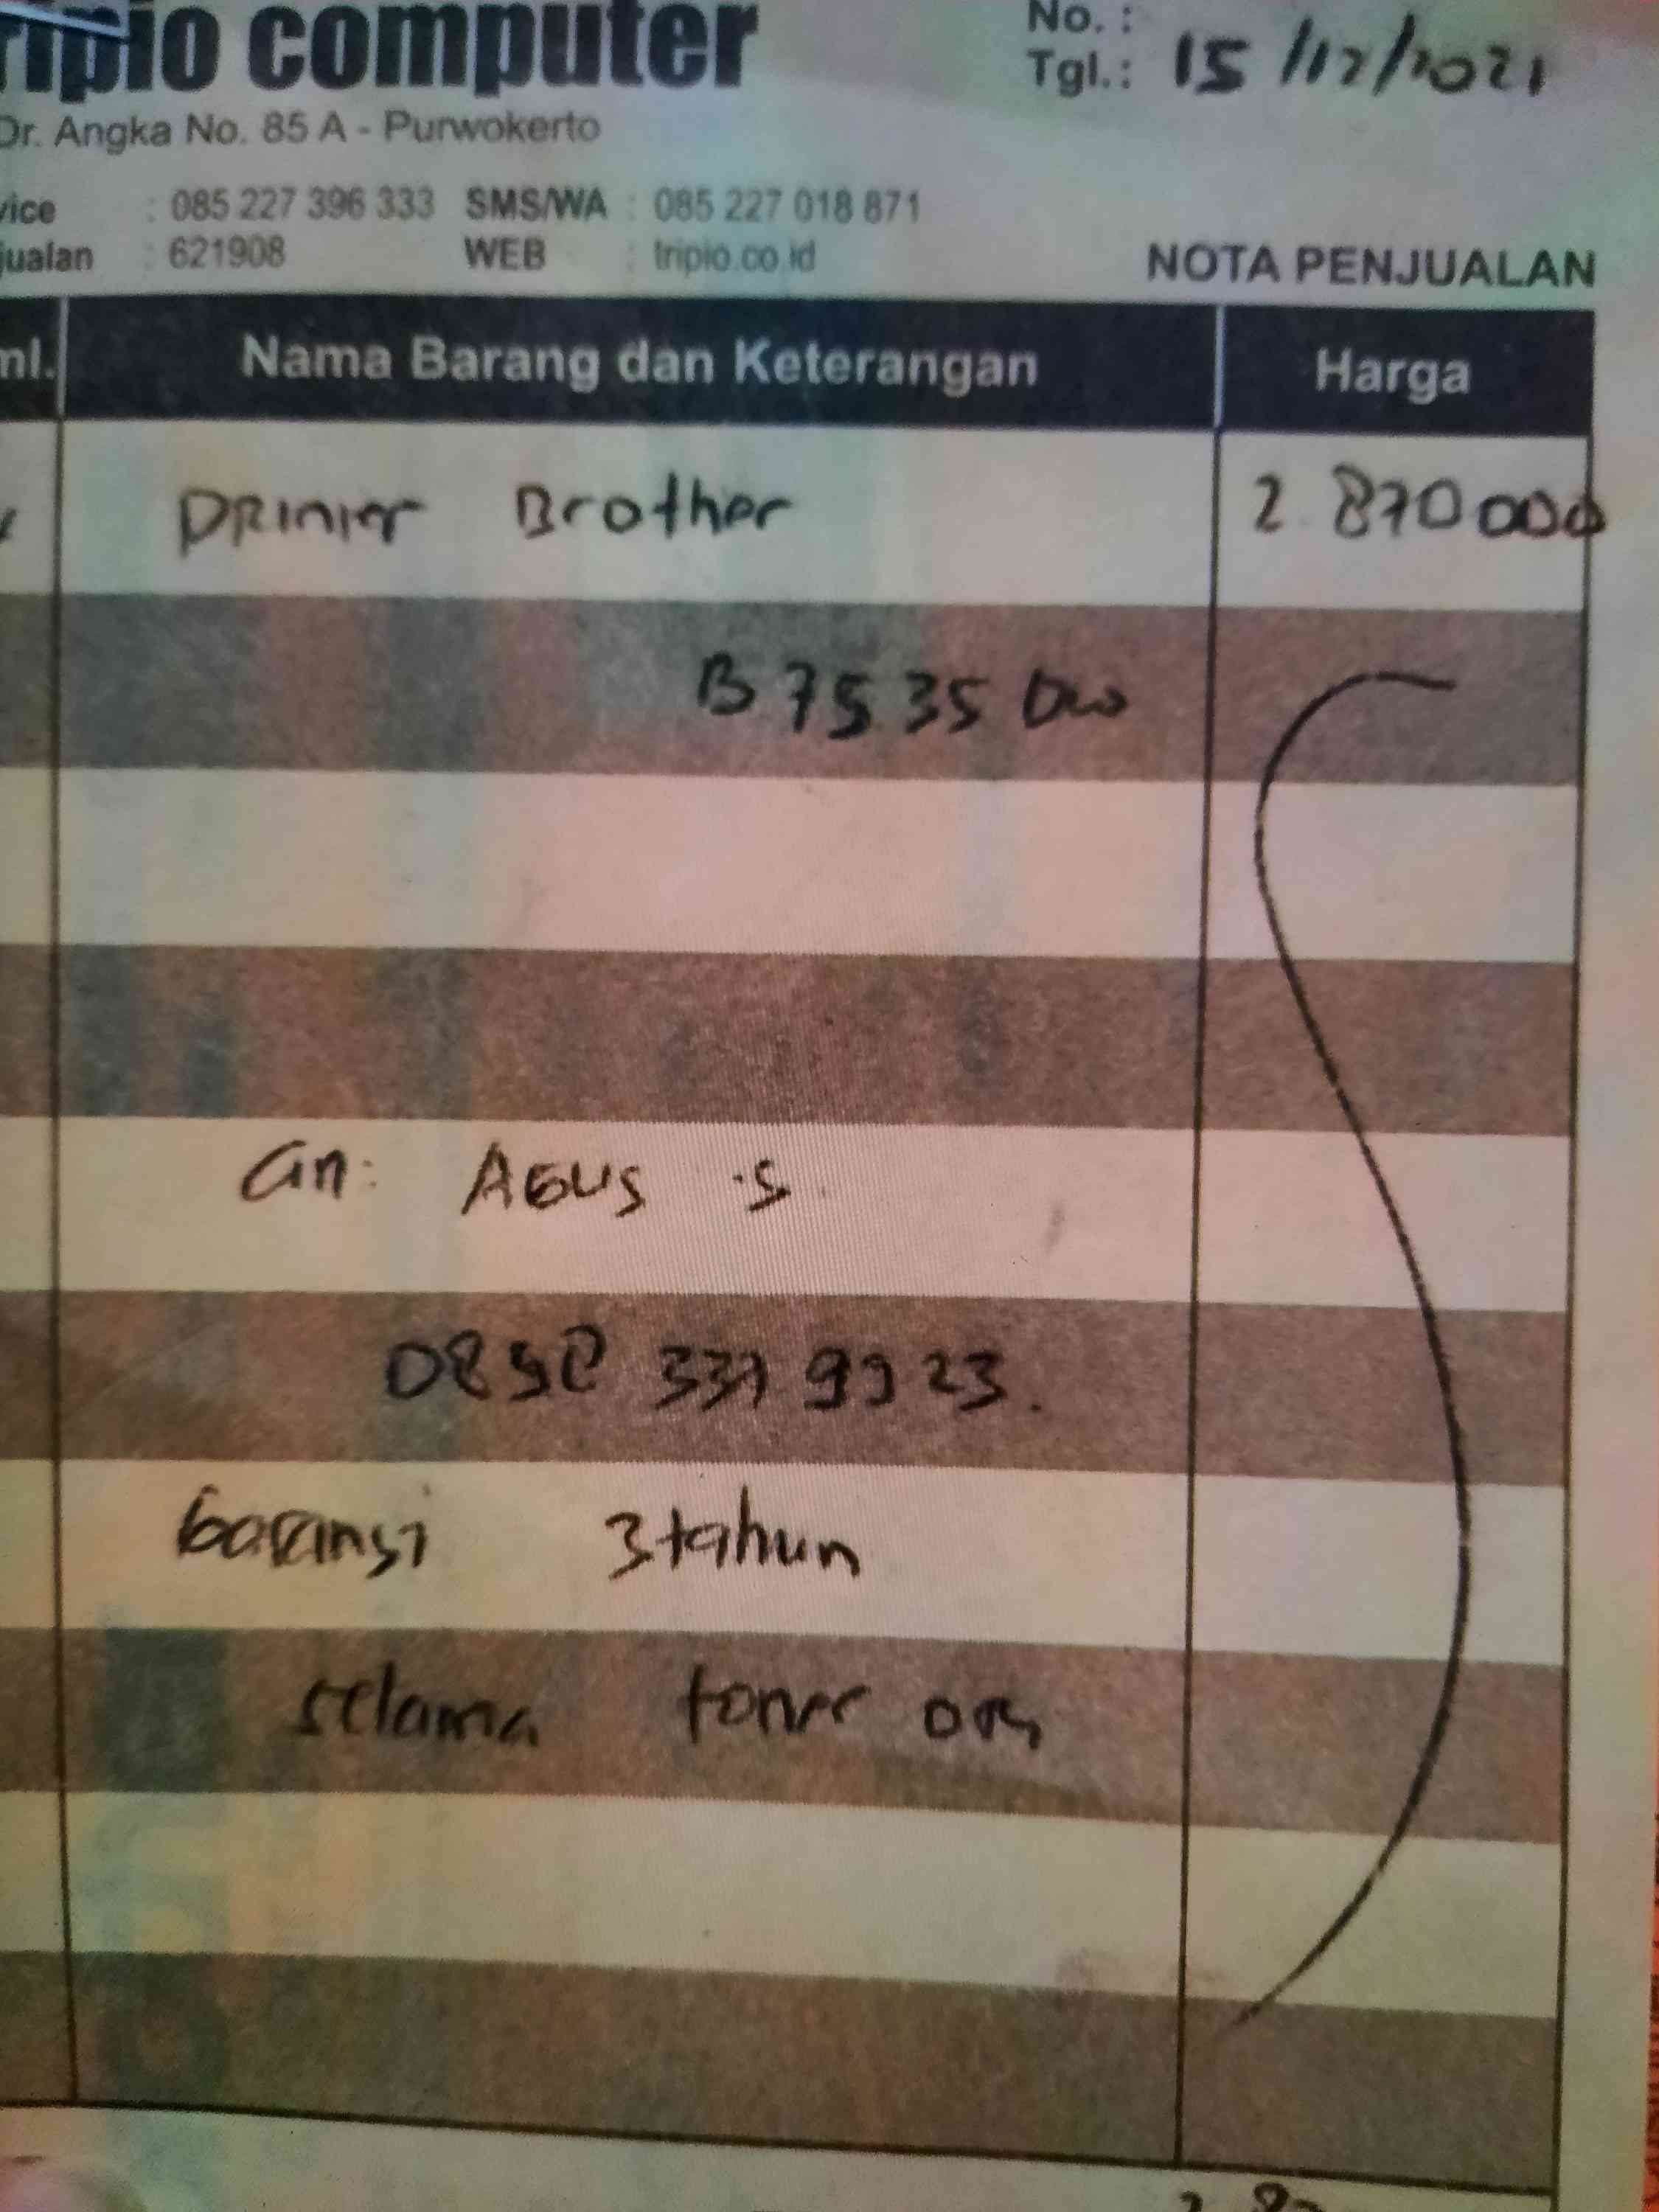 ripio computer
No. :
Tgl.: 15/12/2021
Dr. Angka No. 85 A - Purwokerto
vice : 085 227 396 333 SMS/WA : 085 227 018 871
jualan : 621908 WEB : tripio.co.id
NOTA PENJUALAN
ml. Nama Barang dan Keterangan Harga
Printer Brother 2.870000
B 7535 DW
an: AGUS .S
garansi 3tahun
selama toner ori